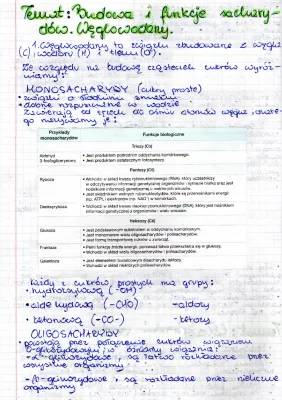 Temat: Budowa i funkcje sachary-
dów. Węglowodany.
1. Węglowodany to związki zbudowane z węgla
(C), wodoru (H) i tlenu (O).
Ze względu na budowę cząsteczek cukrów wyróż-
niamy:
MONOSACHARYDY (cukry proste)
• związki o słodkim smaku
• dobrze rozpuszczalne w wodzie
Zawierają od trzech do ośmiu atomów węgla
Przykłady monosacharydów
Funkcje biologiczne
Triozy (C₃)
Aldehyd 3-fosfoglicerynowy
• Jest produktem pośrednim oddychania komórkowego.
• Jest produktem ostatecznym fotosyntezy.
Pentozy (C₅)
Ryboza
• Wchodzi w skład kwasu rybonukleinowego (RNA), który uczestniczy
w odczytywaniu informacji genetycznej organizmów i
Deoksyryboza
• Wchodzi w skład kwasu deoksyrybonukleinowego (DNA), który jest nośnikiem
informacji genetycznej organizmów i wielu wirusów.
Heksozy (C₆)
Glukoza
• Jest podstawowym substratem w oddychaniu komórkowym.
• Jest monomerem wielu oligosacharydów i polisacharydów.
• Jest formą transportową cukrów u zwierząt.
Fruktoza
• Pełni funkcję źródła energii, ponieważ łatwo przekształca się w glukozę.
• Wchodzi w skład wielu oligosacharydów i polisacharydów.
Galaktoza
• Jest elementem budulcowym disacharydu laktozy.
• Wchodzi w skład niektórych polisacharydów.
Każdy z cukrów prostych ma grupy:
• hydroksylową (-OH)
• aldehydową (-CHO) - aldozy
• ketonową (-CO-) - ketozy
OLIGOSACHARYDY
• powstają przez połączenie cukrów wiązaniem
O-glikozydowym
- α-glikozydowe, są łatwo rozkładane przez
wszystkie organizmy
- β-glikozydowe, są rozkładane przez nieliczne
organizmy